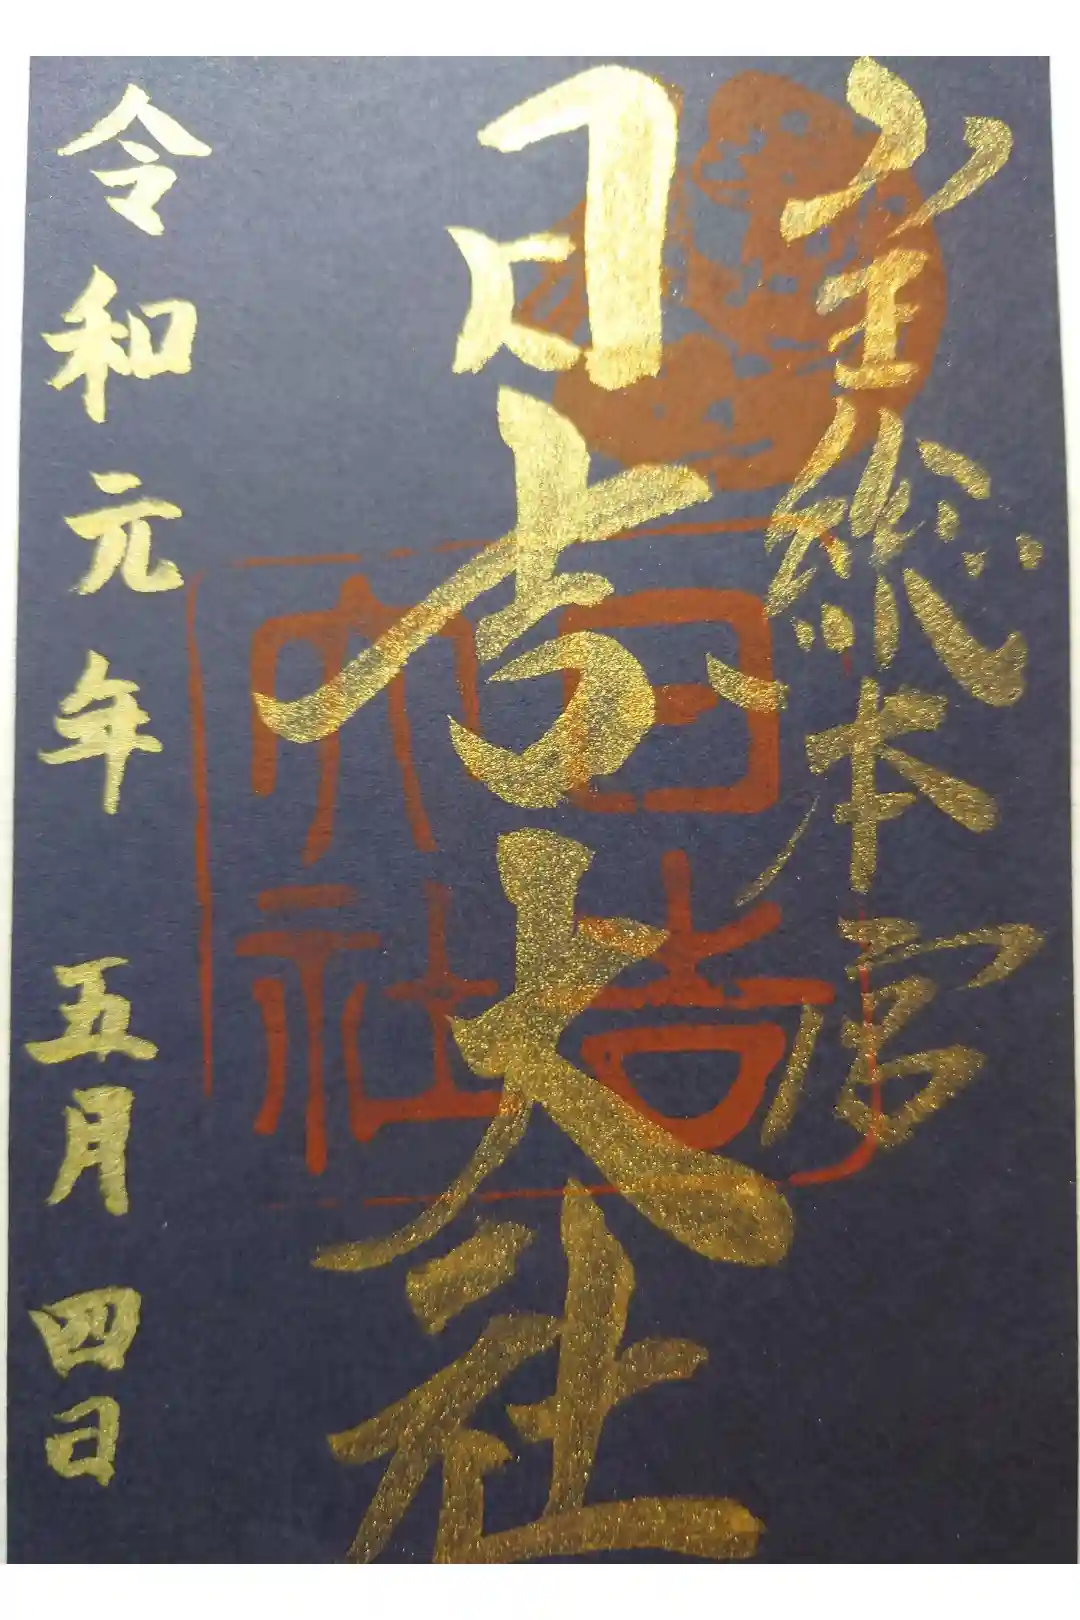 山王総本宮
日吉大社
令和元年 五月 四日
日吉
大社